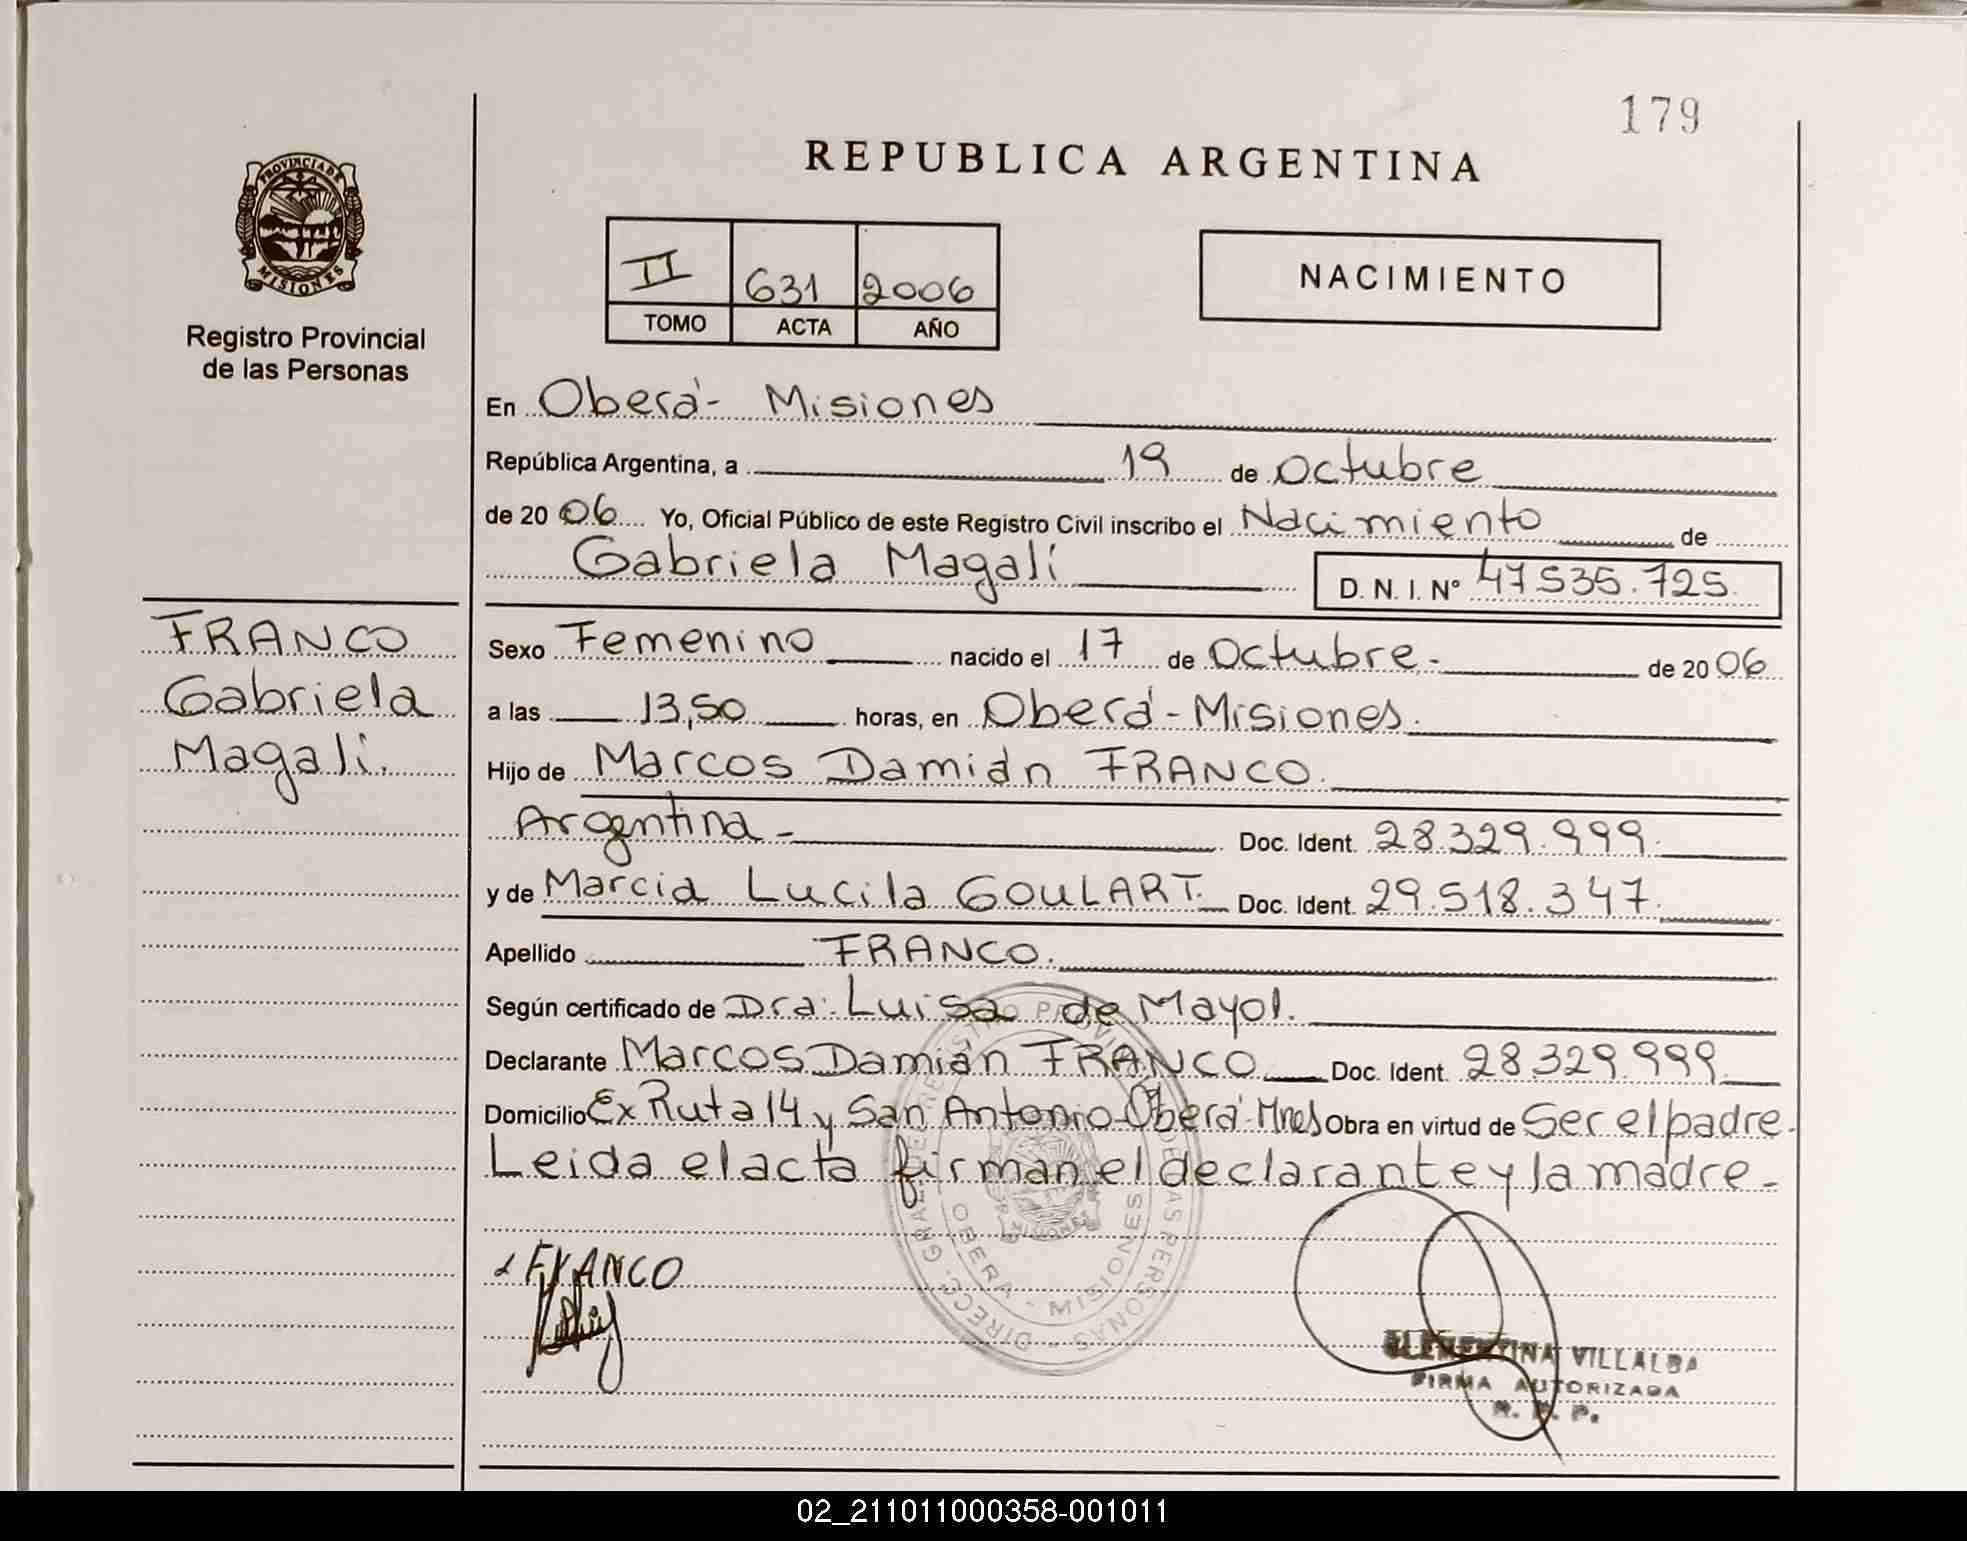 179
REPUBLICA ARGENTINA
PROVINCIA DE
MISIONES
Registro Provincial
de las Personas
II 631 2006
TOMO ACTA AÑO
NACIMIENTO
En Oberá - Misiones
República Argentina, a 19 de Octubre
de 20 06 Yo, Oficial Público de este Registro Civil inscribo el Nacimiento de
Gabriela Magalí D. N. I. Nº 47535.725.
FRANCO
Gabriela
Magalí.
Sexo Femenino nacido el 17 de Octubre.- de 20 06
a las 13,50 horas, en Oberá - Misiones.
Hijo de Marcos Damián FRANCO.
Argentina - Doc. Ident. 28.329.999.
y de Marcia Lucila GOULART. Doc. Ident. 29.518.347.
Apellido FRANCO.
Según certificado de Dra. Luisa de Mayol.
Declarante Marcos Damián FRANCO Doc. Ident. 28.329.999
Domicilio Ex Ruta 14 y San Antonio-Oberá-Mnes Obra en virtud de Ser el padre.
Leida el acta firman el declarante y la madre -
FRANCO
DIRECC. GRAL. DE REGISTRO PROVINCIAL DE LAS PERSONAS
OBERA - MISIONES
CLEMENTINA VILLALBA
FIRMA AUTORIZADA
R. P. P.
02_211011000358-001011